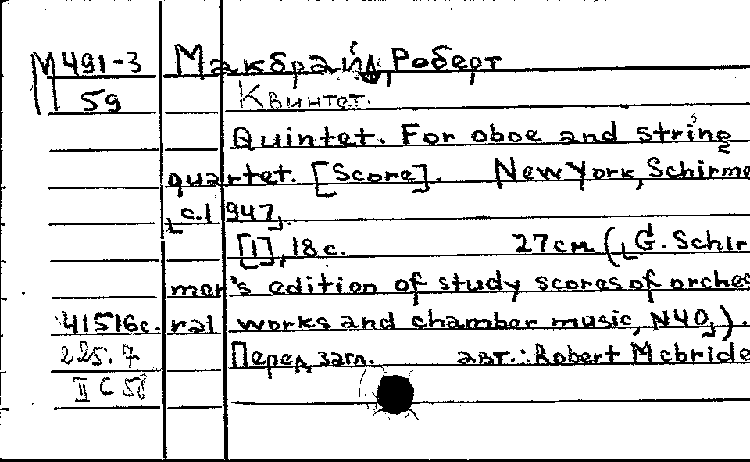 М491-3 Макбрайд, Роберт
П 59 Квинтет.
Quintet. For oboe and string
quartet. [Score]. New York, Schirme
[c.1947].
[1], 18 с. 27см ([G. Schir
mer's edition of study scores of orches
41516с. ral works and chamber music, N40]).
225.7 Перед загл. авт.: Robert Mcbride
II С 58